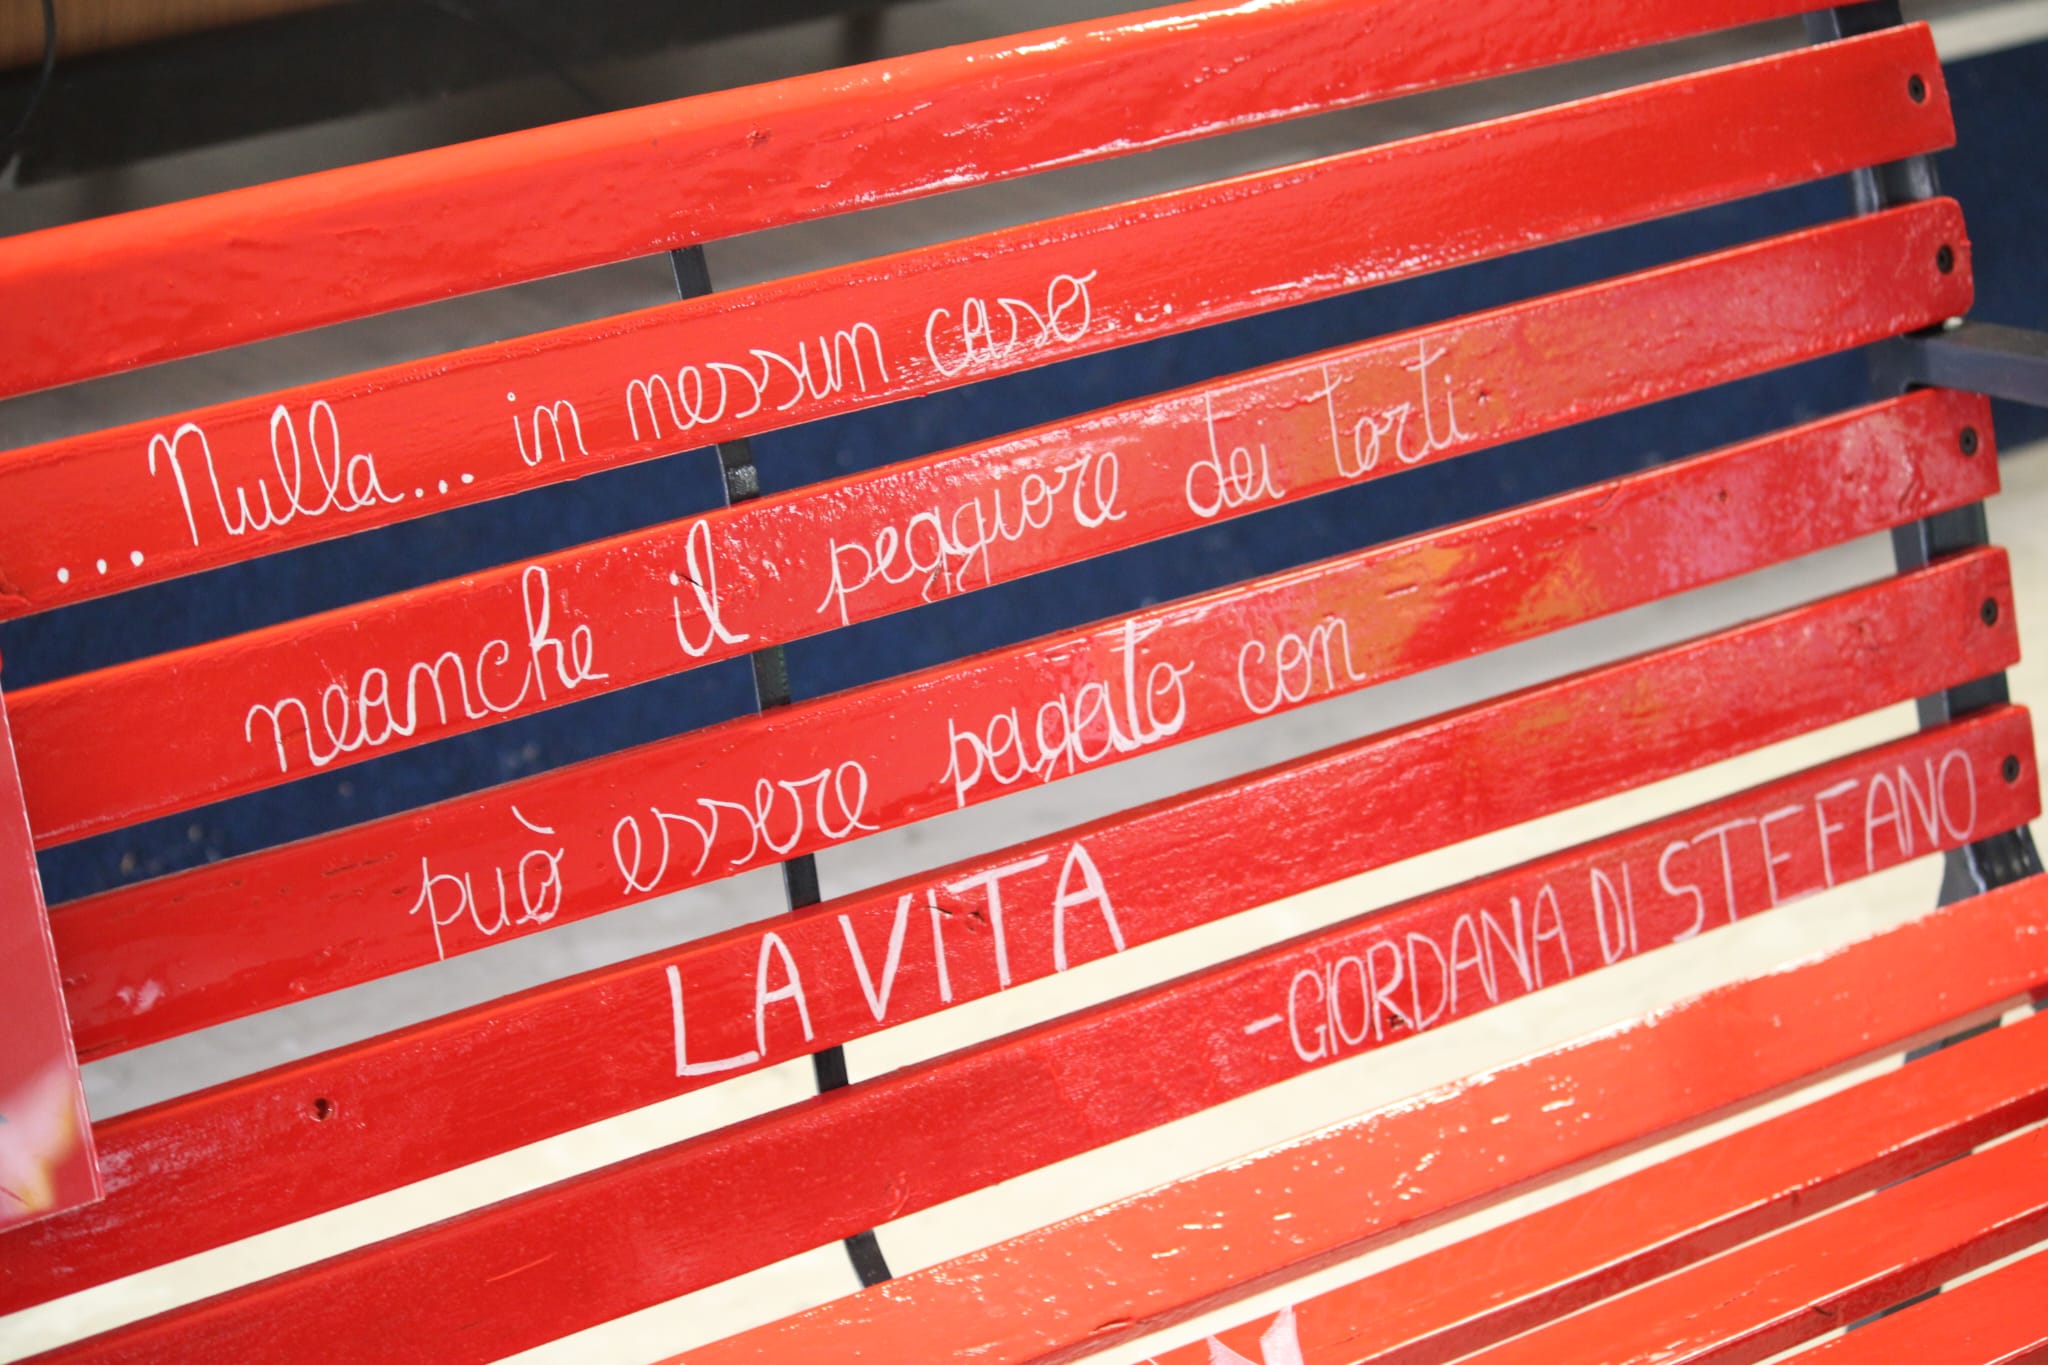 ...Nulla... in nessun caso...
neanche il peggiore dei torti
può essere pagato con
LA VITA
-GIORDANA DI STEFANO